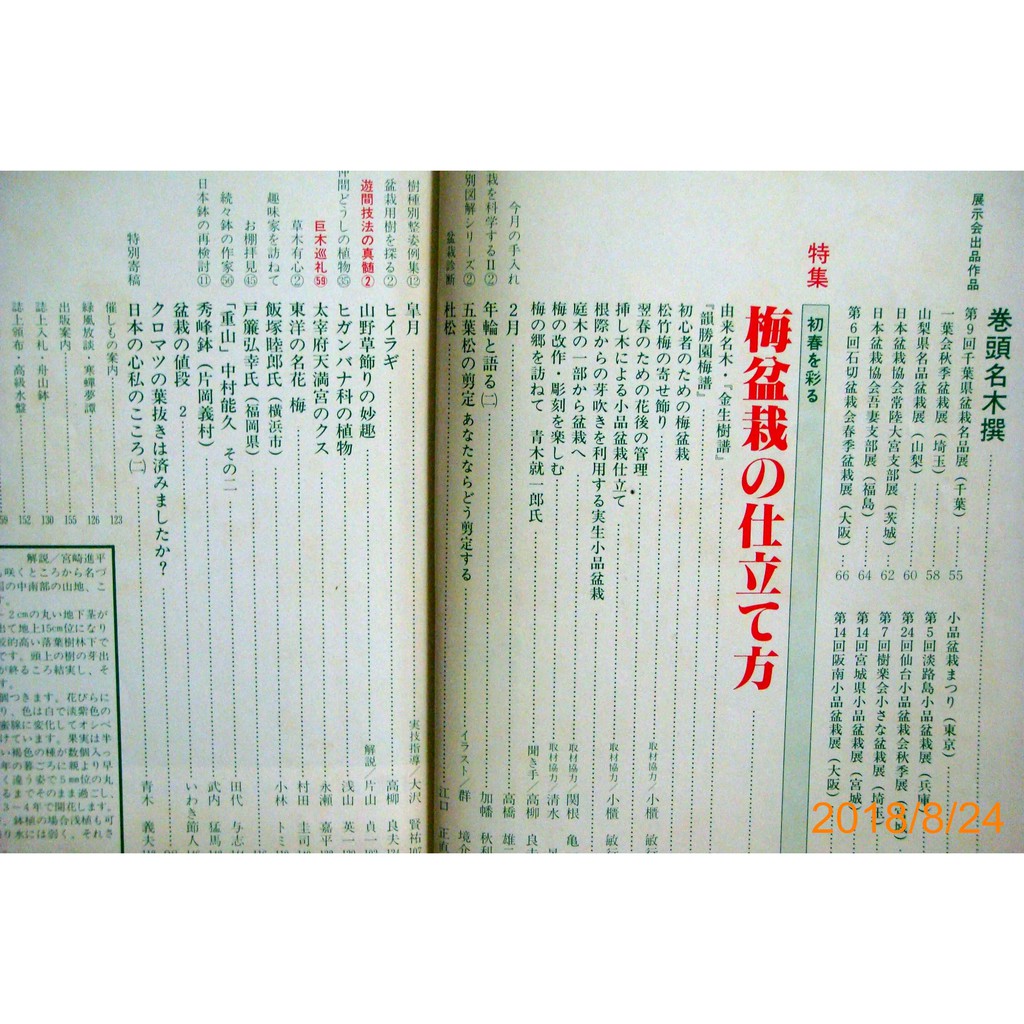 展示会出品作品
巻頭名木撰
第9回千葉県盆栽名品展（千葉） 55
一葉会秋季盆栽展（埼玉） 58
山梨県名品盆栽展（山梨） 60
日本盆栽協会常陸大宮支部展（茨城） 62
日本盆栽協会吾妻支部展（福島） 64
第6回石切盆栽会春季盆栽展（大阪） 66
小品盆栽まつり（東京）
第5回淡路島小品盆栽展（兵庫）
第24回仙台小品盆栽会秋季展
第7回樹楽会小さな盆栽展（埼玉）
第14回宮城県小品盆栽展（宮城）
第14回阪南小品盆栽展（大阪）
特集
初春を彩る
梅盆栽の仕立て方
由来名木・『金生樹譜』
『韻勝園梅譜』
初心者のための梅盆栽
松竹梅の寄せ飾り
翌春のための花後の管理 取材協力／小櫃 敏行
挿し木による小品盆栽仕立て
根際からの芽吹きを利用する実生小品盆栽 取材協力／小櫃 敏行
庭木の一部から盆栽へ 取材協力／関根
梅の改作・彫刻を楽しむ 取材協力／清水
梅の郷を訪ねて 青木就一郎氏 聞き手／高柳 良夫
今月の手入れ
2月 高橋 雄二
栽を科学するⅡ②
年輪と語る（二） 加幡 秋利
別図解シリーズ②
五葉松の剪定 あなたならどう剪定する イラスト／群 境介
盆栽診断
杜松 江口 正直
樹種別整姿例集⑫
皐月 実技指導／大沢 賢祐 107
盆栽用樹を探る②
ヒイラギ 高柳 良夫
遊間技法の真髄②
山野草飾りの妙趣 解説／片山 貞一
仲間どうしの植物㉟
ヒガンバナ科の植物 浅山 英一
巨木巡礼59
太宰府天満宮のクス 永瀬 嘉平
草木有心②
東洋の名花 梅 村田 圭司
趣味家を訪ねて
飯塚睦郎氏（横浜市） 小林 トミ
お棚拝見㊺
戸簾弘幸氏（福岡県） 田代 与志
続々鉢の作家56
「重山」中村能久 その二 武内 猛馬
盆栽の値段 2 いわき節人
日本鉢の再検討⑪
秀峰鉢（片岡義村）
クロマツの葉抜きは済みましたか？
特別寄稿
日本の心私のこころ（二） 青木 義夫
催しもの案内 123
緑風放談・寒蟬夢譚 126
出版案内 155
誌上入札・舟山鉢 130
誌上頒布・高級水盤 152
59
解説／宮崎進平
咲くところから名づ
の中南部の山地、こ
す。
－2㎝の丸い地下茎が
出て地上15㎝位になり
較的高い落葉樹林下で
です。頭上の樹の芽出
が終るころ結実し、そ
す。
個つきます。花びらに
り、色は白で淡紫色の
蜜腺に変化してオシベ
けています。果実は半
い褐色の種が数個入っ
年の暮ごろに親より早
く違う姿で5㎜位の丸
るまでそのまま過ごし、
3－4年で開花します。
、鉢植の場合浅植も可
り水には弱く、それさ
2018/8/24